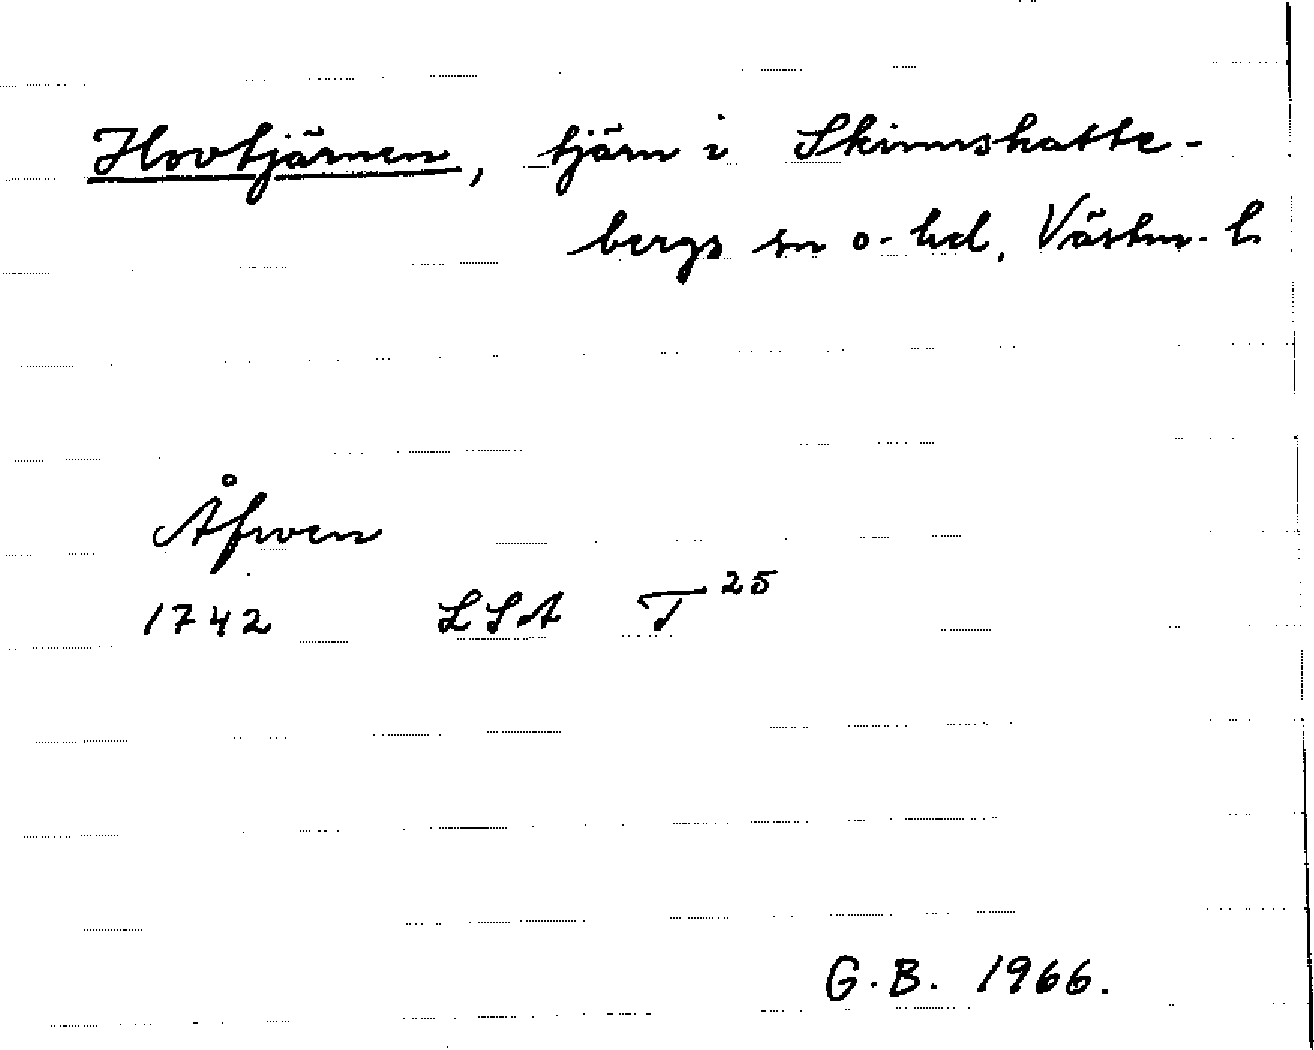 Hovtjärnen, tjärn i Skinnskatte-
bergs sn o. hd, Västm. l.
Åfwen
1742 LSA T 25
G.B. 1966.